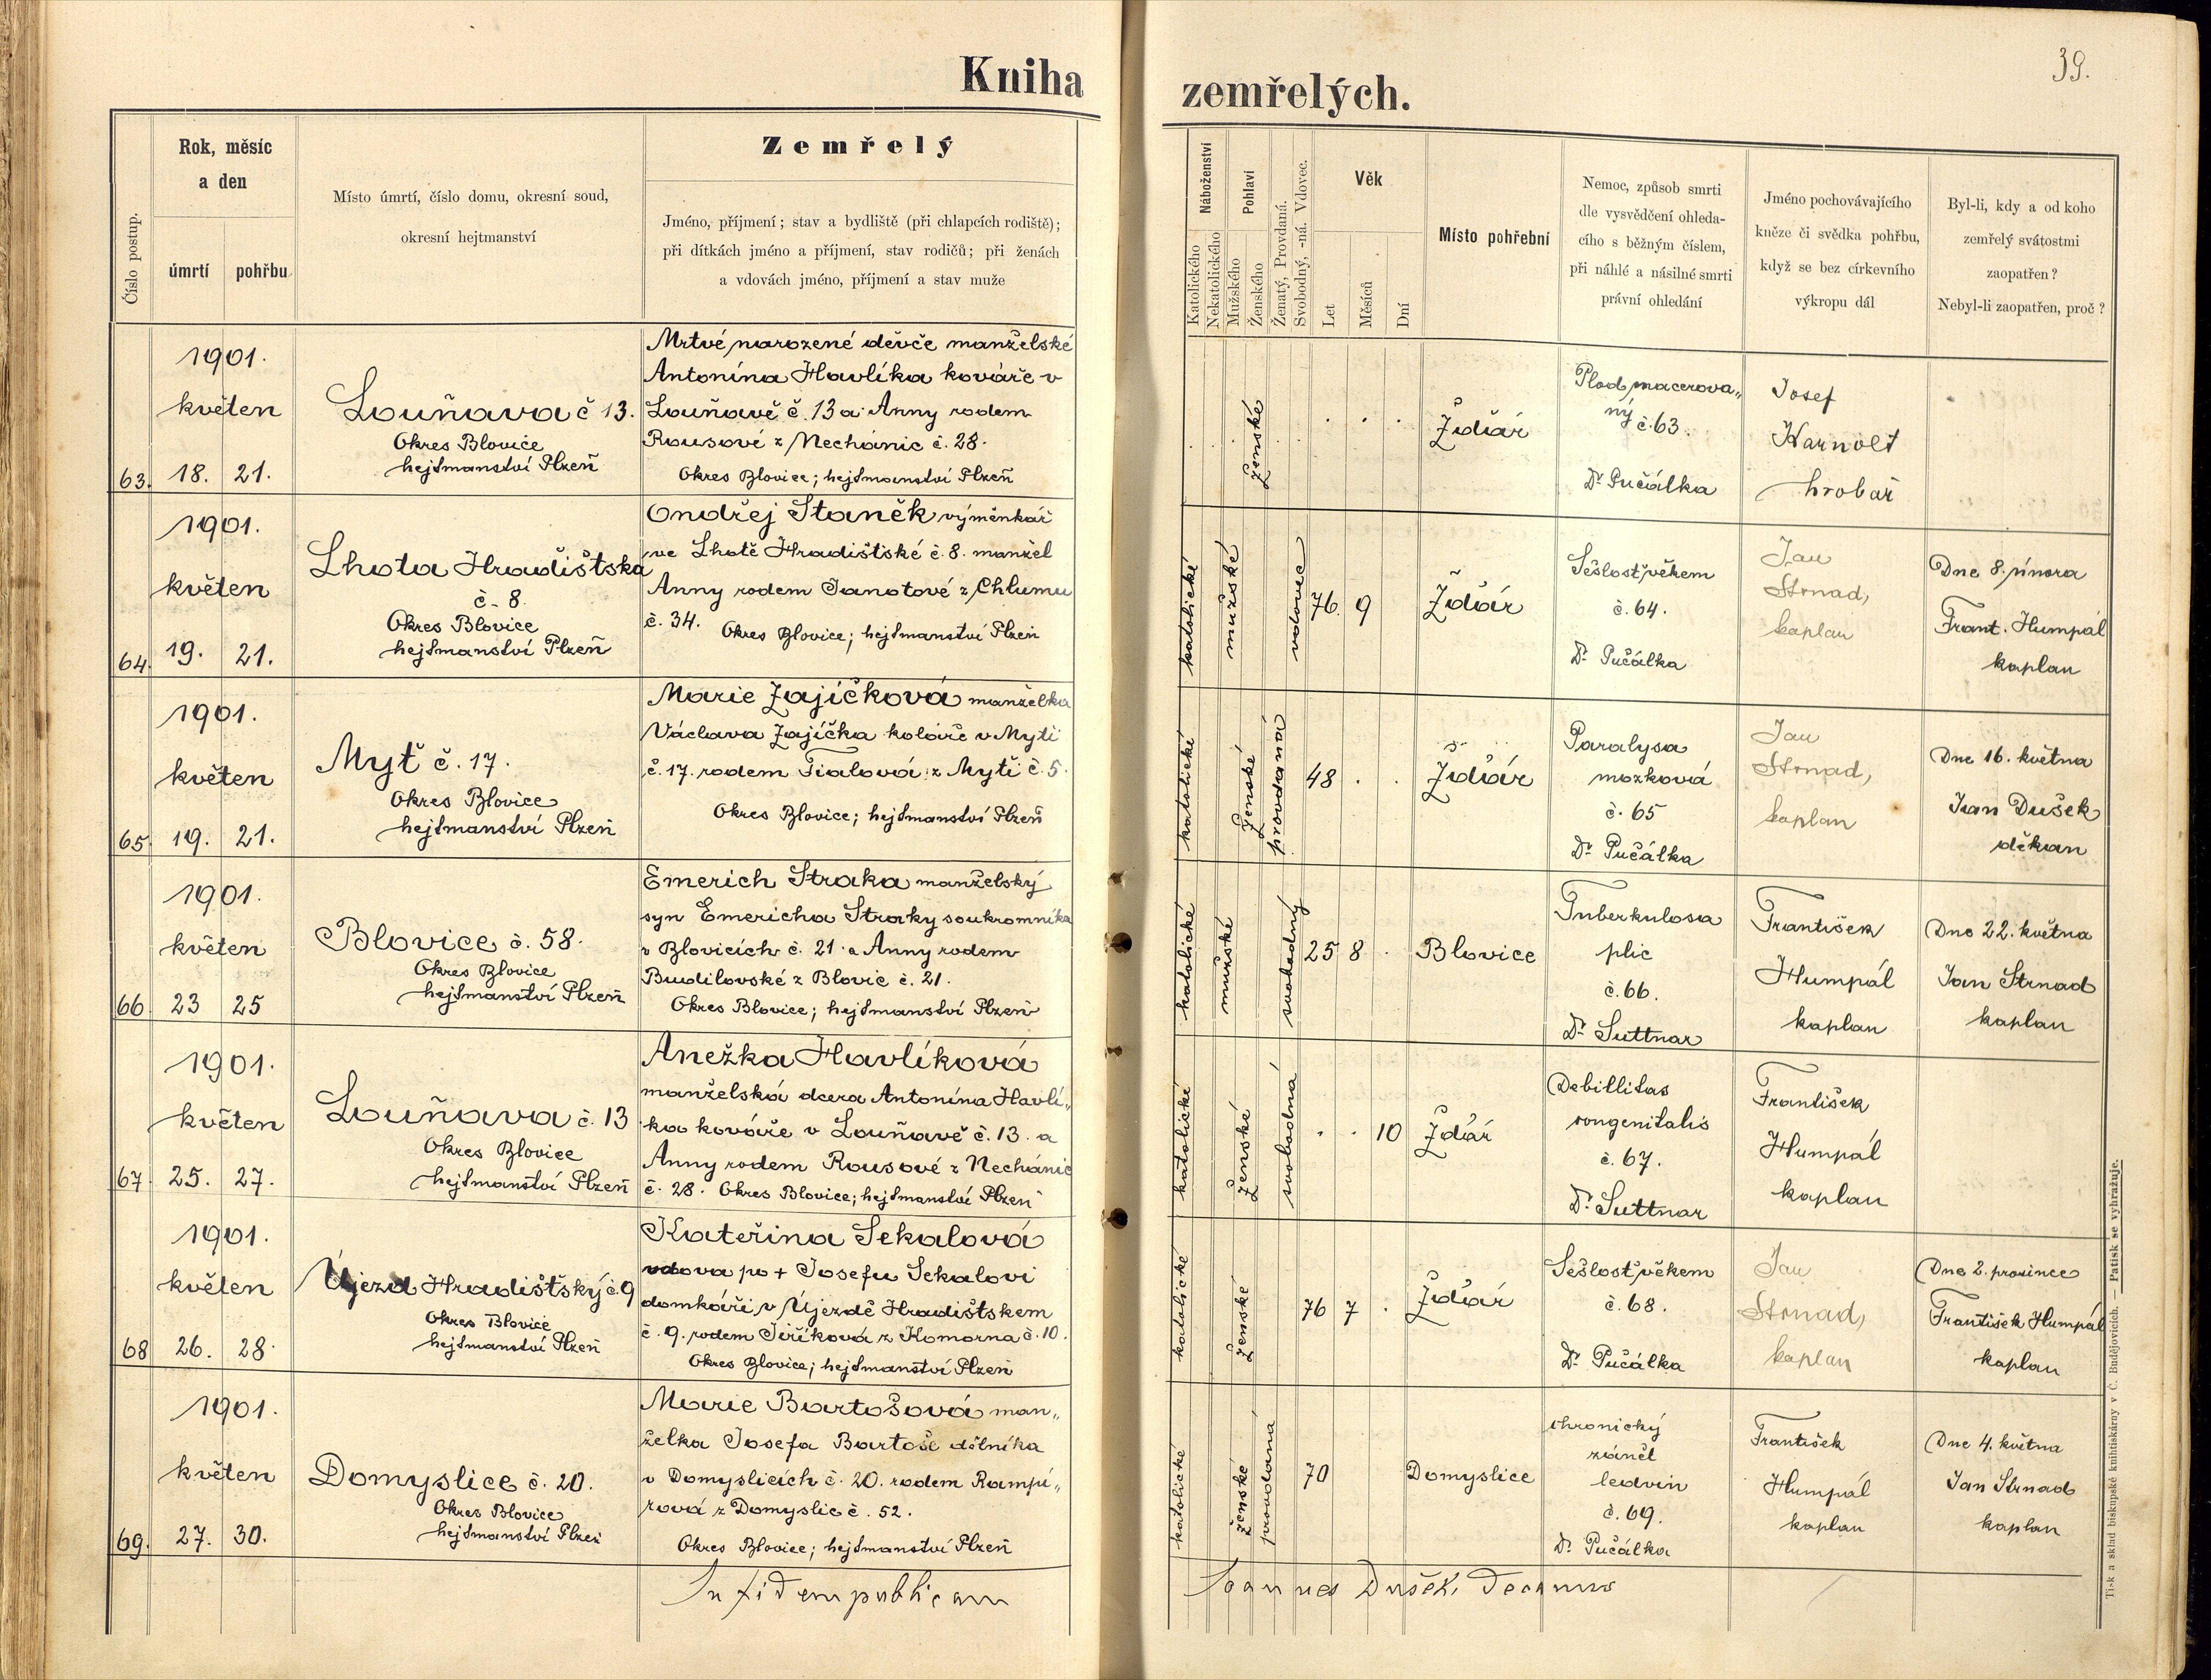 39.
Kniha zemřelých.
Číslo postup.
Rok, měsíc
a den
úmrtí
pohřbu
Místo úmrtí, číslo domu, okresní soud,
okresní hejtmanství
Zemřelý
Jméno, příjmení; stav a bydliště (při chlapcích rodiště);
při dítkách jméno a příjmení, stav rodičů; při ženách
a vdovách jméno, příjmení a stav muže
Náboženství
Katolického
Nekatolického
Pohlaví
Mužského
Ženského
Ženatý, Provdaná.
Svobodný, -ná. Vdovec.
Věk
Let
Měsíců
Dní
Místo pohřební
Nemoc, způsob smrti
dle vysvědčení ohleda-
cího s běžným číslem,
při náhlé a násilné smrti
právní ohledání
Jméno pochovávajícího
kněze či svědka pohřbu,
když se bez církevního
výkropu dál
Byl-li, kdy a od koho
zemřelý svátostmi
zaopatřen?
Nebyl-li zaopatřen, proč?
63.
1901.
květen
18. 21.
Louňava č 13.
Okres Blovice
hejtmanství Plzeň
Mrtvé narozené děvče manželské
Antonína Havlíka kováře v
Louňavě č. 13 a Anny rodem
Rousové z Nechánic č. 28.
Okres Blovice; hejtmanství Plzeň
ženské
Ždár
Plod macerova„
ný č. 63.
Dr Pučálka
Josef
Harnolt
hrobař
64.
1901.
květen
19. 21.
Lhota Hradištska
č. 8
Okres Blovice
hejtmanství Plzeň
Ondřej Staněk výměnkář
ve Lhotě Hradištské č. 8. manžel
Anny rodem Janotové z Chlumu
č. 34. Okres Blovice; hejtmanství Plzeň
katolické
mužské
vdovec
76. 9
Ždár
Sešlost věkem
č. 64.
Dr Pučálka
Jan
Strnad,
kaplan
Dne 8. února
Frant. Humpál
kaplan
65
1901.
květen
19. 21.
Myť č. 17.
Okres Blovice
hejtmanství Plzeň
Marie Zajíčková manželka
Václava Zajíčka koláře v Myti
č. 17. rodem Fialová z Mytě č. 5.
Okres Blovice; hejtmanství Plzeň
katolické
ženské
provdaná
48
Ždár
Paralysa
mozková
č. 65
Dr Pučálka
Jan
Strnad,
kaplan
Dne 16. května
Jan Dušek
děkan
66
1901.
květen
23 25
Blovice č. 58.
Okres Blovice
hejtmanství Plzeň
Emerich Straka manželský
syn Emericha Straky soukromníka
v Blovicích č. 21 a Anny rodem
Budilovské z Blovic č. 21.
Okres Blovice; hejtmanství Plzeň
katolické
mužské
svobodný
25 8
Blovice
Tuberkulosa
plic
č. 66.
Dr Suttnar
František
Humpál
kaplan
Dne 22. května
Jan Strnad
kaplan
67
1901.
květen
25. 27.
Louňava č. 13
Okres Blovice
hejtmanství Plzeň
Anežka Havlíková
manželská dcera Antonína Havlí„
ka kováře v Louňavě č. 13. a
Anny rodem Rousové z Nechánic
č. 28. Okres Blovice; hejtmanství Plzeň
katolické
ženské
svobodná
10
Ždár
Debillitas
congenitalis
č. 67.
Dr Suttnar
František
Humpál
kaplan
68
1901.
květen
26. 28.
Újezd Hradištský č. 9
Okres Blovice
hejtmanství Plzeň
Kateřina Sekalová
vdova po + Josefu Sekalovi
domkáři v Újezdě Hradištskem
č. 9. rodem Jiříková z Komorna č. 10.
Okres Blovice; hejtmanství Plzeň
katolické
ženské
76 7
Ždár
Sešlost věkem
č. 68.
Dr Pučálka
Jan
Strnad,
kaplan
Dne 2. prosince
František Humpál
kaplan
69.
1901.
květen
27. 30.
Domyslice č. 20.
Okres Blovice
hejtmanství Plzeň
Marie Bartošová man„
želka Josefa Bartoše dělníka
v Domyslicích č. 20. rodem Rampí„
rová z Domyslic č. 52.
Okres Blovice; hejtmanství Plzeň
katolické
ženské
provdaná
70
Domyslice
chronický
zánět
ledvin
č. 69.
Dr Pučálka
František
Humpál
kaplan
Dne 4. května
Jan Strnad
kaplan
In fidem publicam
Joannes Dušek, Decanus
Tisk a sklad biskupské knihtiskárny v Č. Budějovicích. — Patisk se vyhražuje.